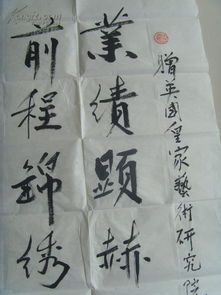 贈英國皇家藝術研究院
業績顯赫
前程錦綉